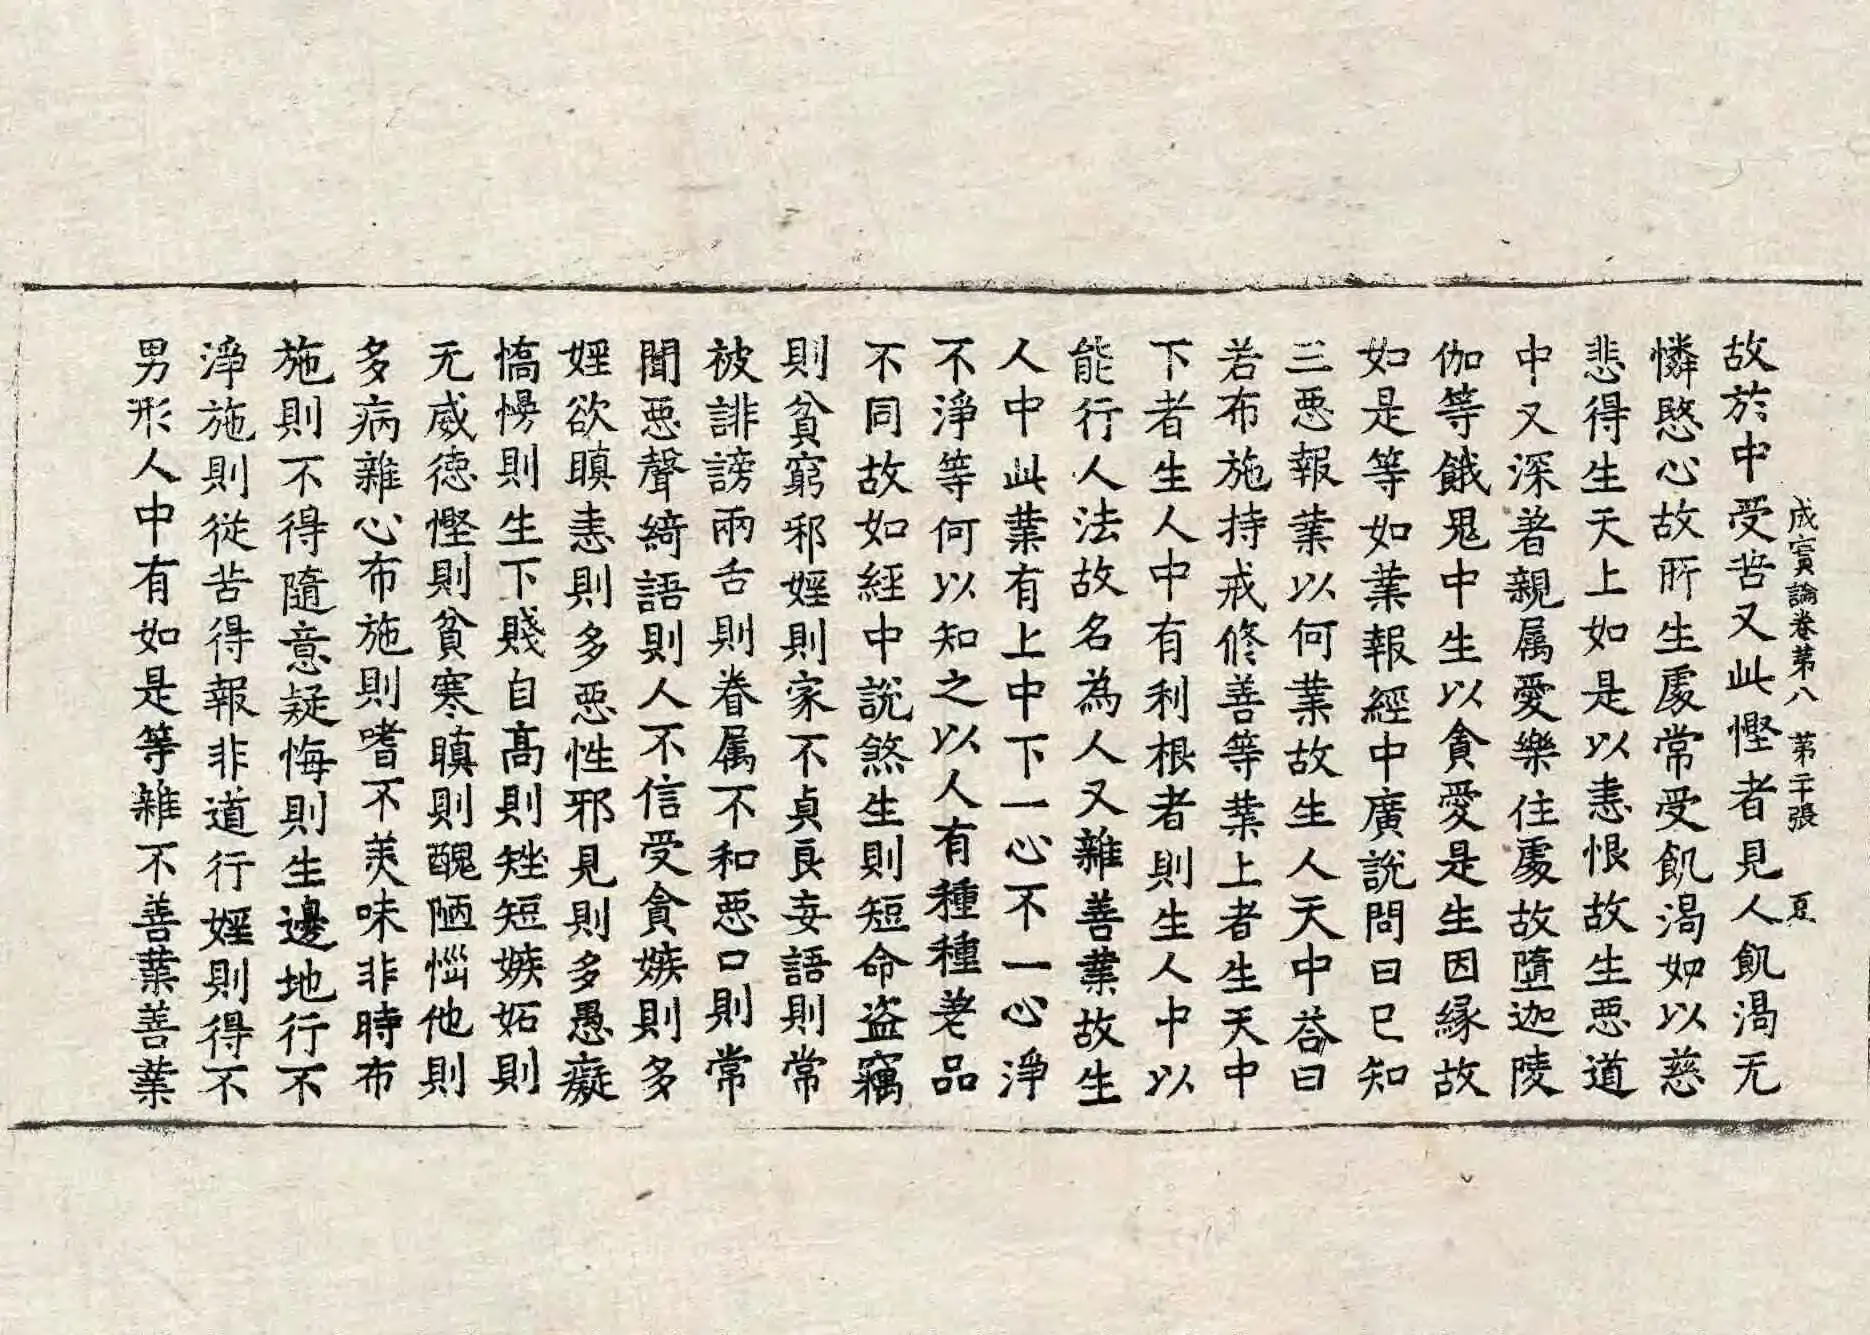 成實論卷第八　第二十張　夏
故於中受苦又此慳者見人飢渴无
憐愍心故所生處常受飢渴如以慈
悲得生天上如是以恚恨故生惡道
中又深著親属愛樂住處故墮迦陵
伽等餓鬼中生以貪愛是生因縁故
如是等如業報經中廣說問曰已知
三惡報業以何業故生人天中荅曰
若布施持戒修善等業上者生天中
下者生人中有利根者則生人中以
能行人法故名為人又雜善業故生
人中此業有上中下一心不一心淨
不淨等何以知之以人有種種差品
不同故如經中說煞生則短命盗竊
則貧窮邪婬則家不貞良妄語則常
被誹謗兩舌則眷属不和惡口則常
聞惡聲綺語則人不信受貪嫉則多
婬欲瞋恚則多惡性邪見則多愚癡
憍慢則生下賤自高則矬短嫉妬則
无威徳慳則貧寒瞋則醜陋惱他則
多病雜心布施則嗜不美味非時布
施則不得隨意疑悔則生邊地行不
淨施則從苦得報非道行婬則得不
男形人中有如是等雜不善業善業